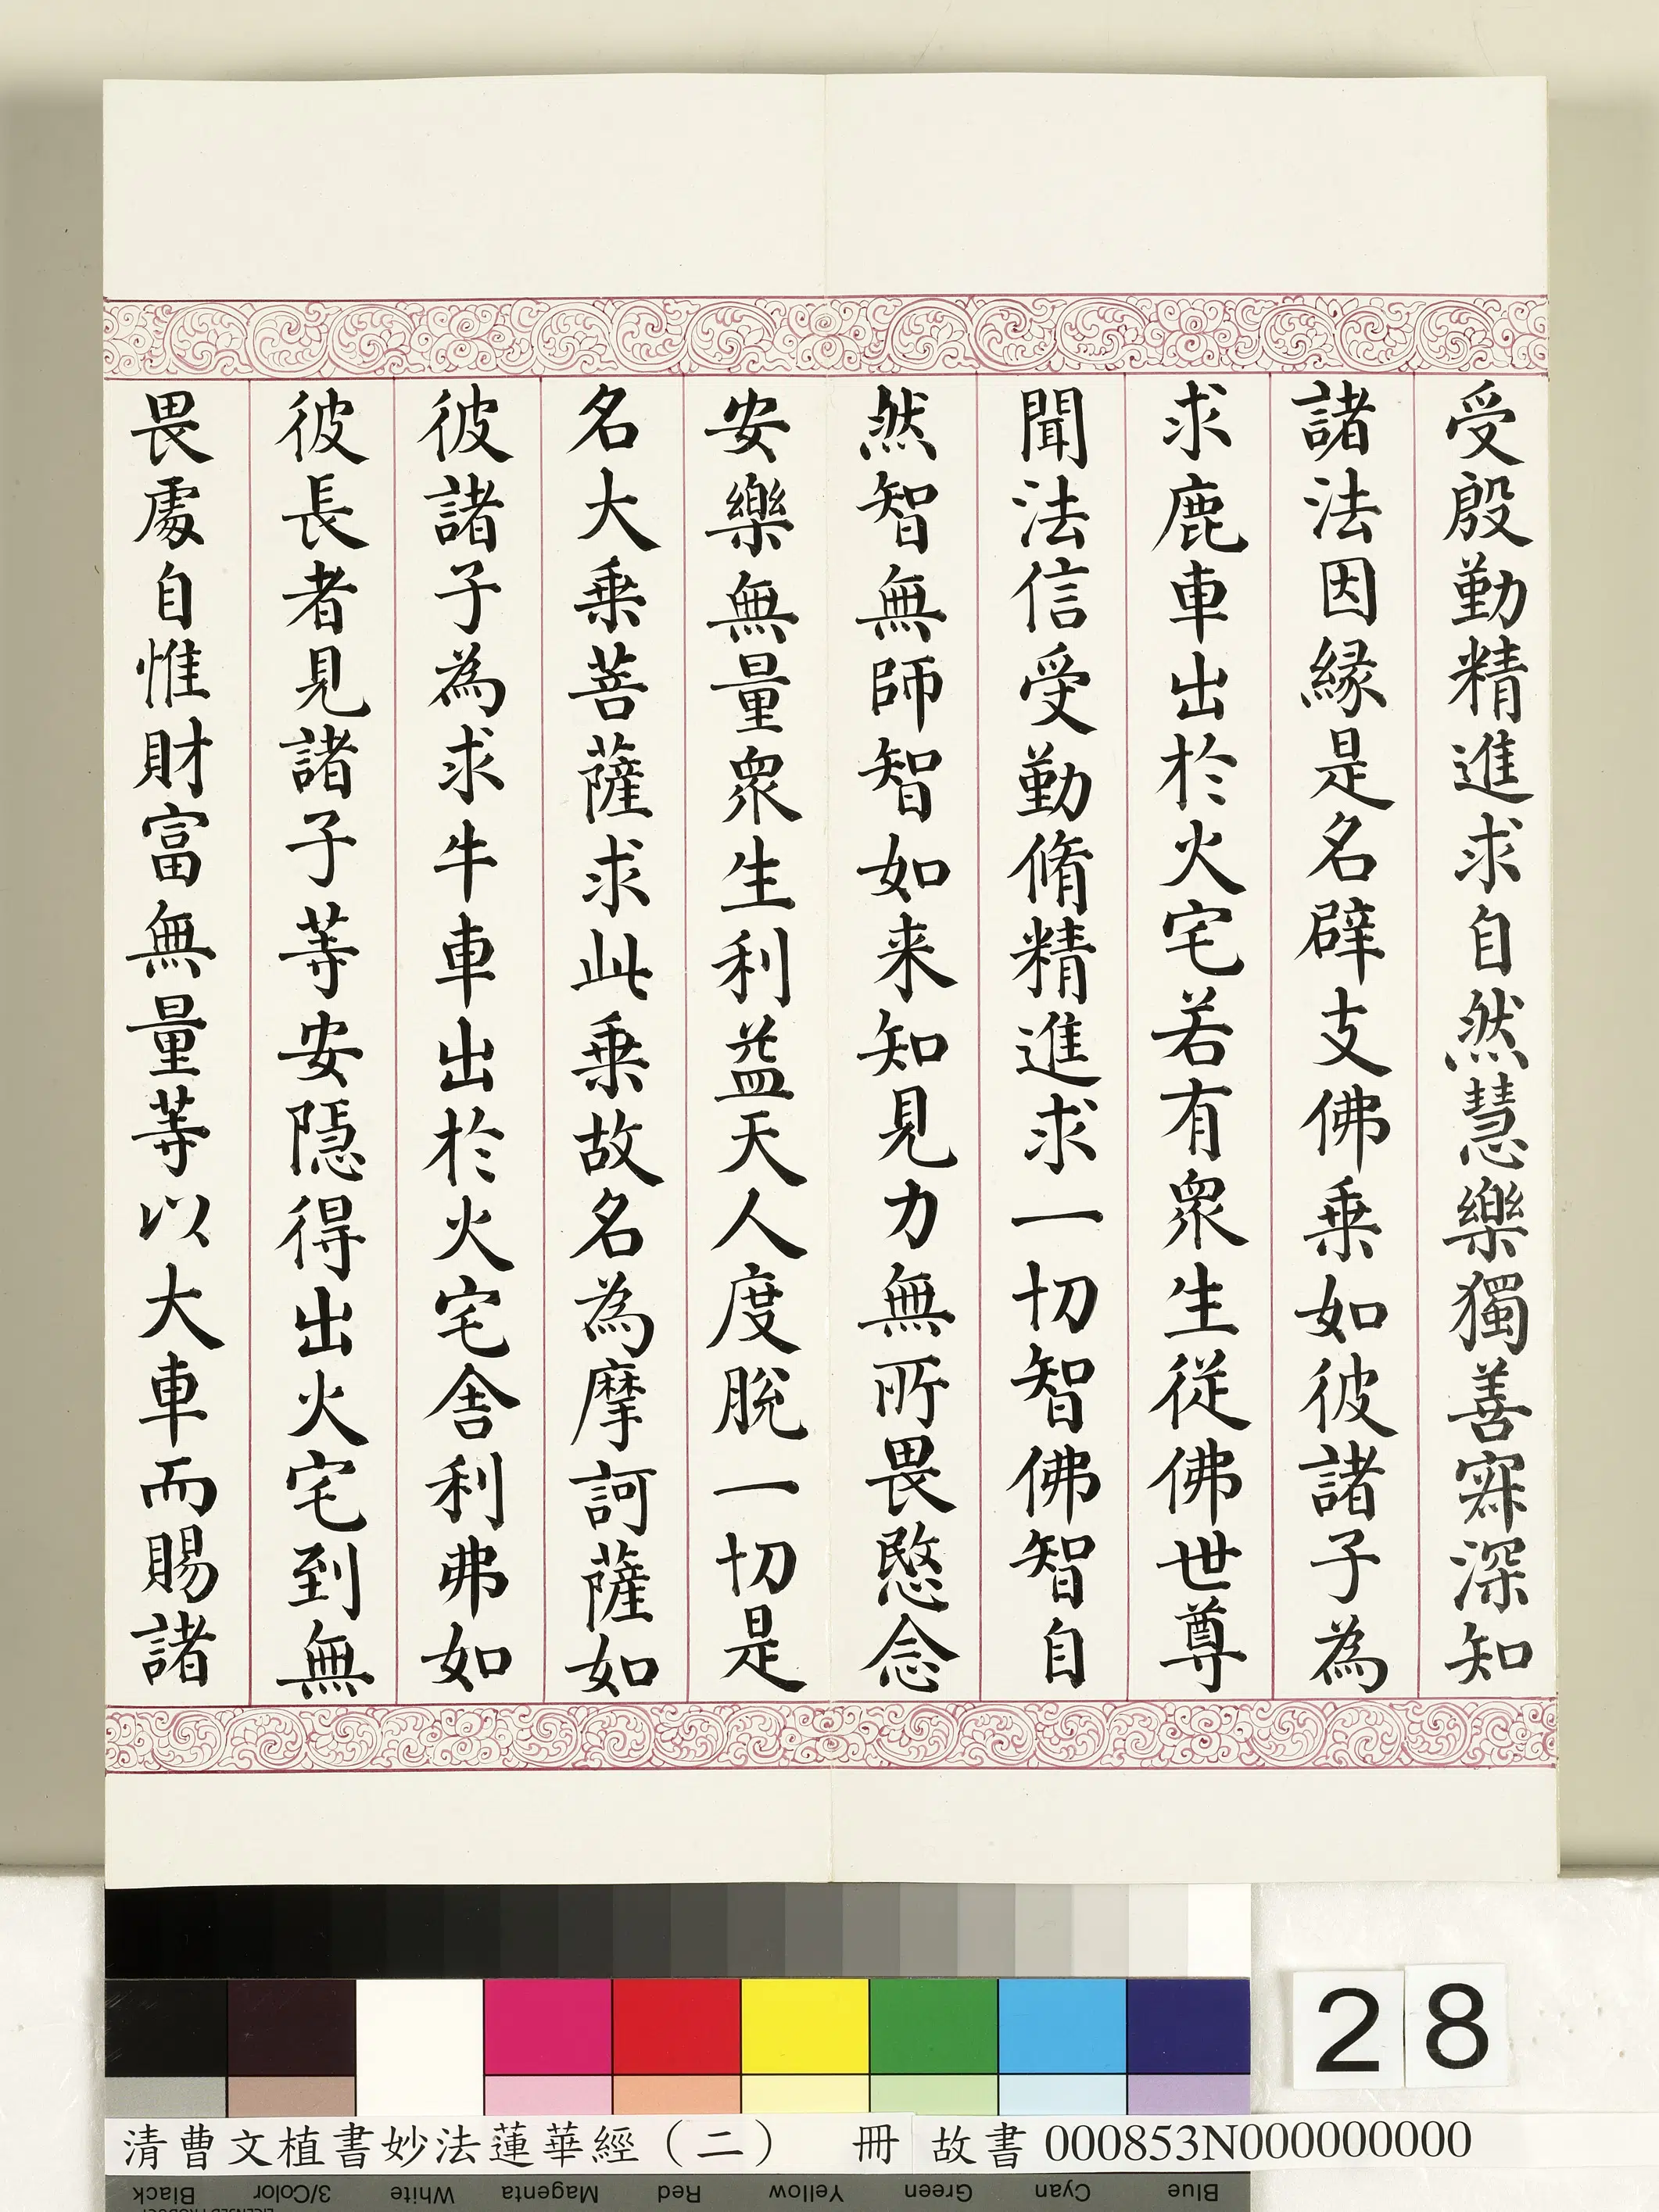 受殷勤精進求自然慧樂獨善寂深知
諸法因縁是名辟支佛乗如彼諸子為
求鹿車出於火宅若有衆生從佛世尊
聞法信受勤脩精進求一切智佛智自
然智無師智如来知見力無所畏愍念
安樂無量衆生利益天人度脫一切是
名大乗菩薩求此乗故名為摩訶薩如
彼諸子為求牛車出於火宅舎利弗如
彼長者見諸子等安隱得出火宅到無
畏處自惟財富無量等以大車而賜諸
28
清曹文植書妙法蓮華經（二） 冊 故書 000853N000000000
Black 3/Color White Magenta Red Yellow Green Cyan Blue